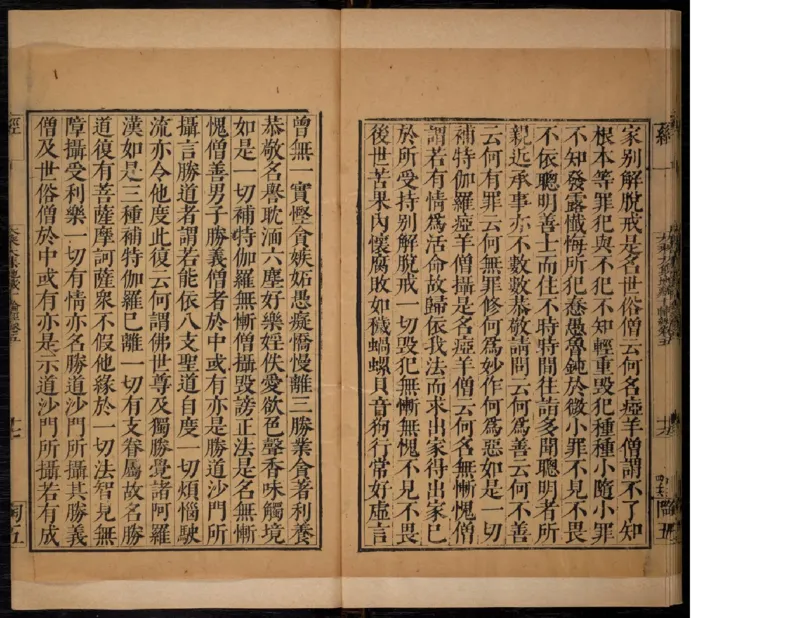 家別解脫戒是名世俗僧云何名瘂羊僧謂不了知
根本等罪犯與不犯不知輕重毀犯種種小隨小罪
不知發露懺悔所犯惷愚魯鈍於微小罪不見不畏
不依聰明善士而住不時時間往詣多聞聰明者所
親近承事亦不數數恭敬請問云何為善云何不善
云何有罪云何無罪修何為妙作何為惡如是一切
補特伽羅瘂羊僧攝是名瘂羊僧云何名無慚愧僧
謂若有情為活命故歸依我法而求出家得出家已
於所受持別解脫戒一切毀犯無慚無愧不見不畏
後世苦果內懷腐敗如穢蝸螺貝音狗行常好虛言
曾無一實慳貪嫉妬愚癡憍慢離三勝業貪著利養
恭敬名譽耽湎六塵好樂婬佚愛欲色聲香味觸境
如是一切補特伽羅無慚僧攝毀謗正法是名無慚
愧僧善男子勝義僧者於中或有亦是勝道沙門所
攝言勝道者謂若能依八支聖道自度一切煩惱駛
流亦令他度此復云何謂佛世尊及獨勝覺諸阿羅
漢如是三種補特伽羅已離一切有支眷屬故名勝
道復有菩薩摩訶薩衆不假他緣於一切法智見無
障攝受利樂一切有情亦名勝道沙門所攝其勝義
僧及世俗僧於中或有亦是示道沙門所攝若有成